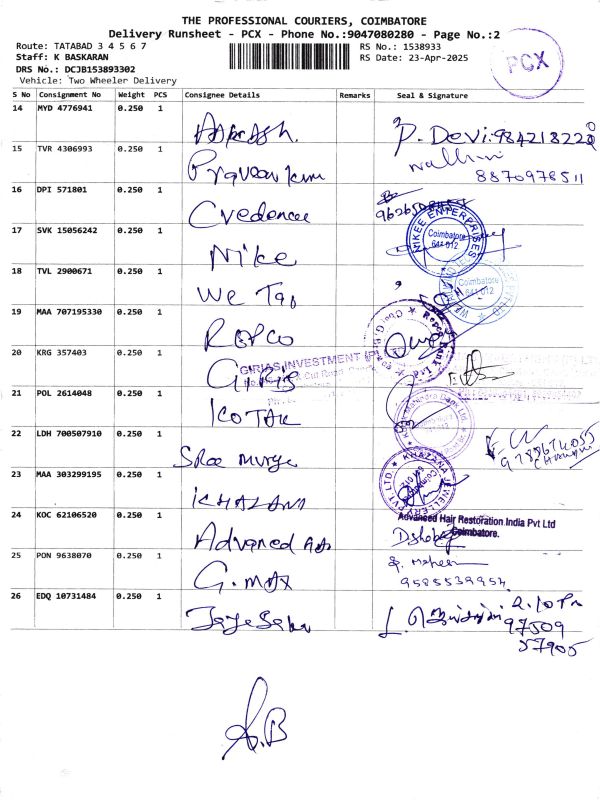 THE PROFESSIONAL COURIERS, COIMBATORE
Delivery Runsheet - PCX - Phone No.:9047080280 - Page No.:2
Route: TATABAD 3 4 5 6 7
RS No.: 1538933
Staff: K BASKARAN
RS Date: 23-Apr-2025
DRS No.: DCJB153893302
Vehicle: Two Wheeler Delivery
PCX
S No Consignment No Weight PCS Consignee Details Remarks Seal & Signature
14 MYD 4776941 0.250 1 Aakash. P. Devi
15 TVR 4306993 0.250 1 Praveen kum
8870978511
16 DPI 571801 0.250 1 Credence
17 SVK 15056242 0.250 1 Nike
NIKEE ENTERPRISES Coimbatore 641 012
18 TVL 2900671 0.250 1 We Tap
Coimbatore 641 012
19 MAA 707195330 0.250 1 REPCO
Repco Bank Ltd
20 KRG 357403 0.250 1 GIRIS
GIRIAS INVESTMENT
21 POL 2614048 0.250 1 KOTAK
Mahindra Bank Ltd
22 LDH 700507910 0.250 1 Sree muruga
23 MAA 303299195 0.250 1 KHAZANA
KHAZANA JEWELLERY PVT LTD. Coimbatore 641 012
24 KOC 62106520 0.250 1 Advanced
Advanced Hair Restoration India Pvt Ltd
Coimbatore.
25 PON 9638070 0.250 1 G. MAX
9585539954
26 EDQ 10731484 0.250 1 2.10 Pm
97509
57905
A.B